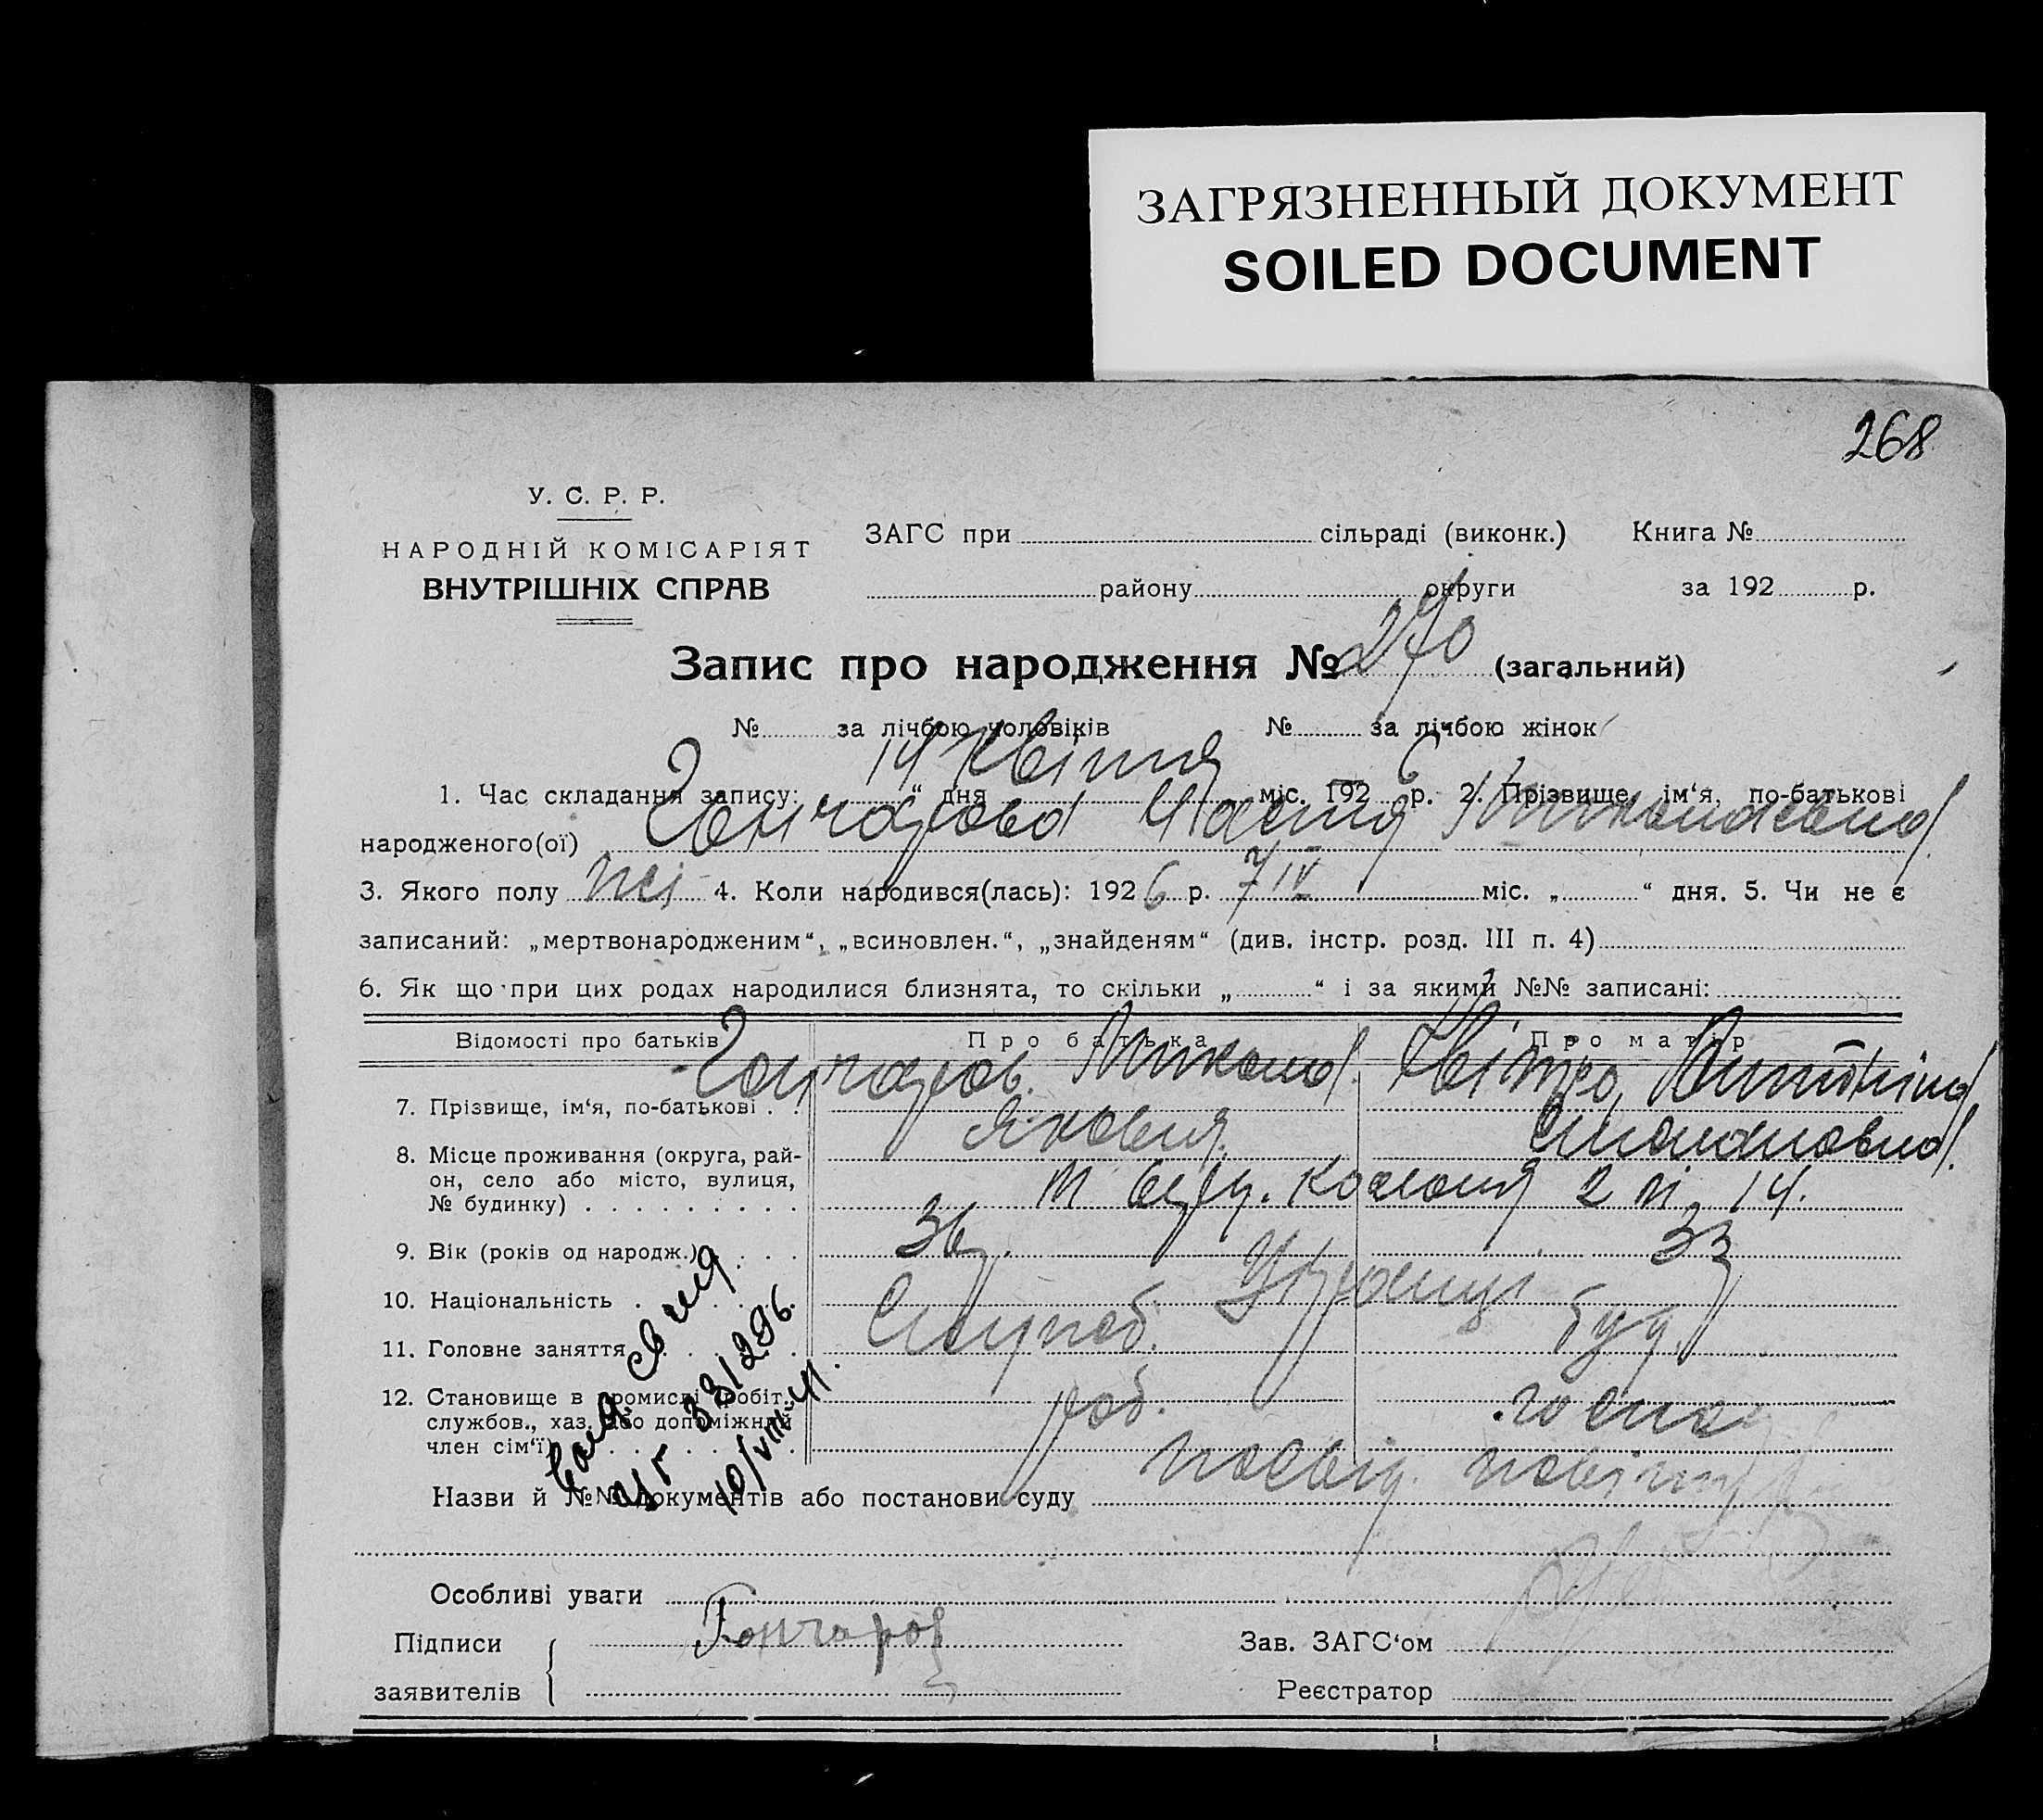 ЗАГРЯЗНЕННЫЙ ДОКУМЕНТ
SOILED DOCUMENT
268
У. С. Р. Р.
НАРОДНІЙ КОМІСАРІЯТ
ВНУТРІШНІХ СПРАВ
ЗАГС при сільраді (виконк.) Книга №
району округи за 192 р.
Запис про народження № 270 (загальний)
№ за лічбою чоловіків № за лічбою жінок
1. Час складання запису: 14 " дня Квітня міс. 192 6 р. 2. Прізвище, ім‘я, по-батькові
народженого(ої) Гончарова Настя Миколаевна
3. Якого полу 4. Коли народився(лась): 192 6 р. 7/IV міс. „ “ дня. 5. Чи не є
записаний: „мертвонародженим“, „всиновлен.“, „знайденям“ (див. інстр. розд. III п. 4)
6. Як що при цих родах народилися близнята, то скільки „ “ і за якими №№ записані:
Відомості про батьків Про батька Про матір
7. Прізвище, ім‘я, по-батькові Гончаров Микола Якович
8. Місце проживання (округа, рай-
он, село або місто, вулиця,
№ будинку) 2 14.
9. Вік (років од народж.) 36 33
10. Національність Українці
11. Головне заняття
12. Становище в промислі (робіт.,
службов., хаз. або допоміжний
член сім‘ї) роб.
Назви й №№ документів або постанови суду посвід.
Особливі уваги
Підписи Гончаров
заявителів
Зав. ЗАГС‘ом
Реєстратор
331296
10/VIII-41.